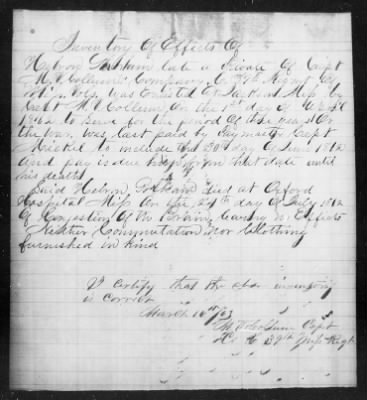 Inventory Of Effects Of
late a Private Of Capt
Company C 39th Regmt Of
Vols, was Enlisted at Miss by
Capt On the 1st day of
1862 to serve for the period of three years Or
the war, was last paid by Paymaster Capt
to include the 30th day of June 1862
and pay is due him from that date until
his death
Said Died at Oxford
Hospital Miss On the 24th day of July 1862
Of Congestion Of the Brain, leaving no Effects
Neither Commutation, nor Clothing
furnished in kind
I certify that the above inventory
is correct
March 16th /63
Capt
Co C 39th Miss Regt